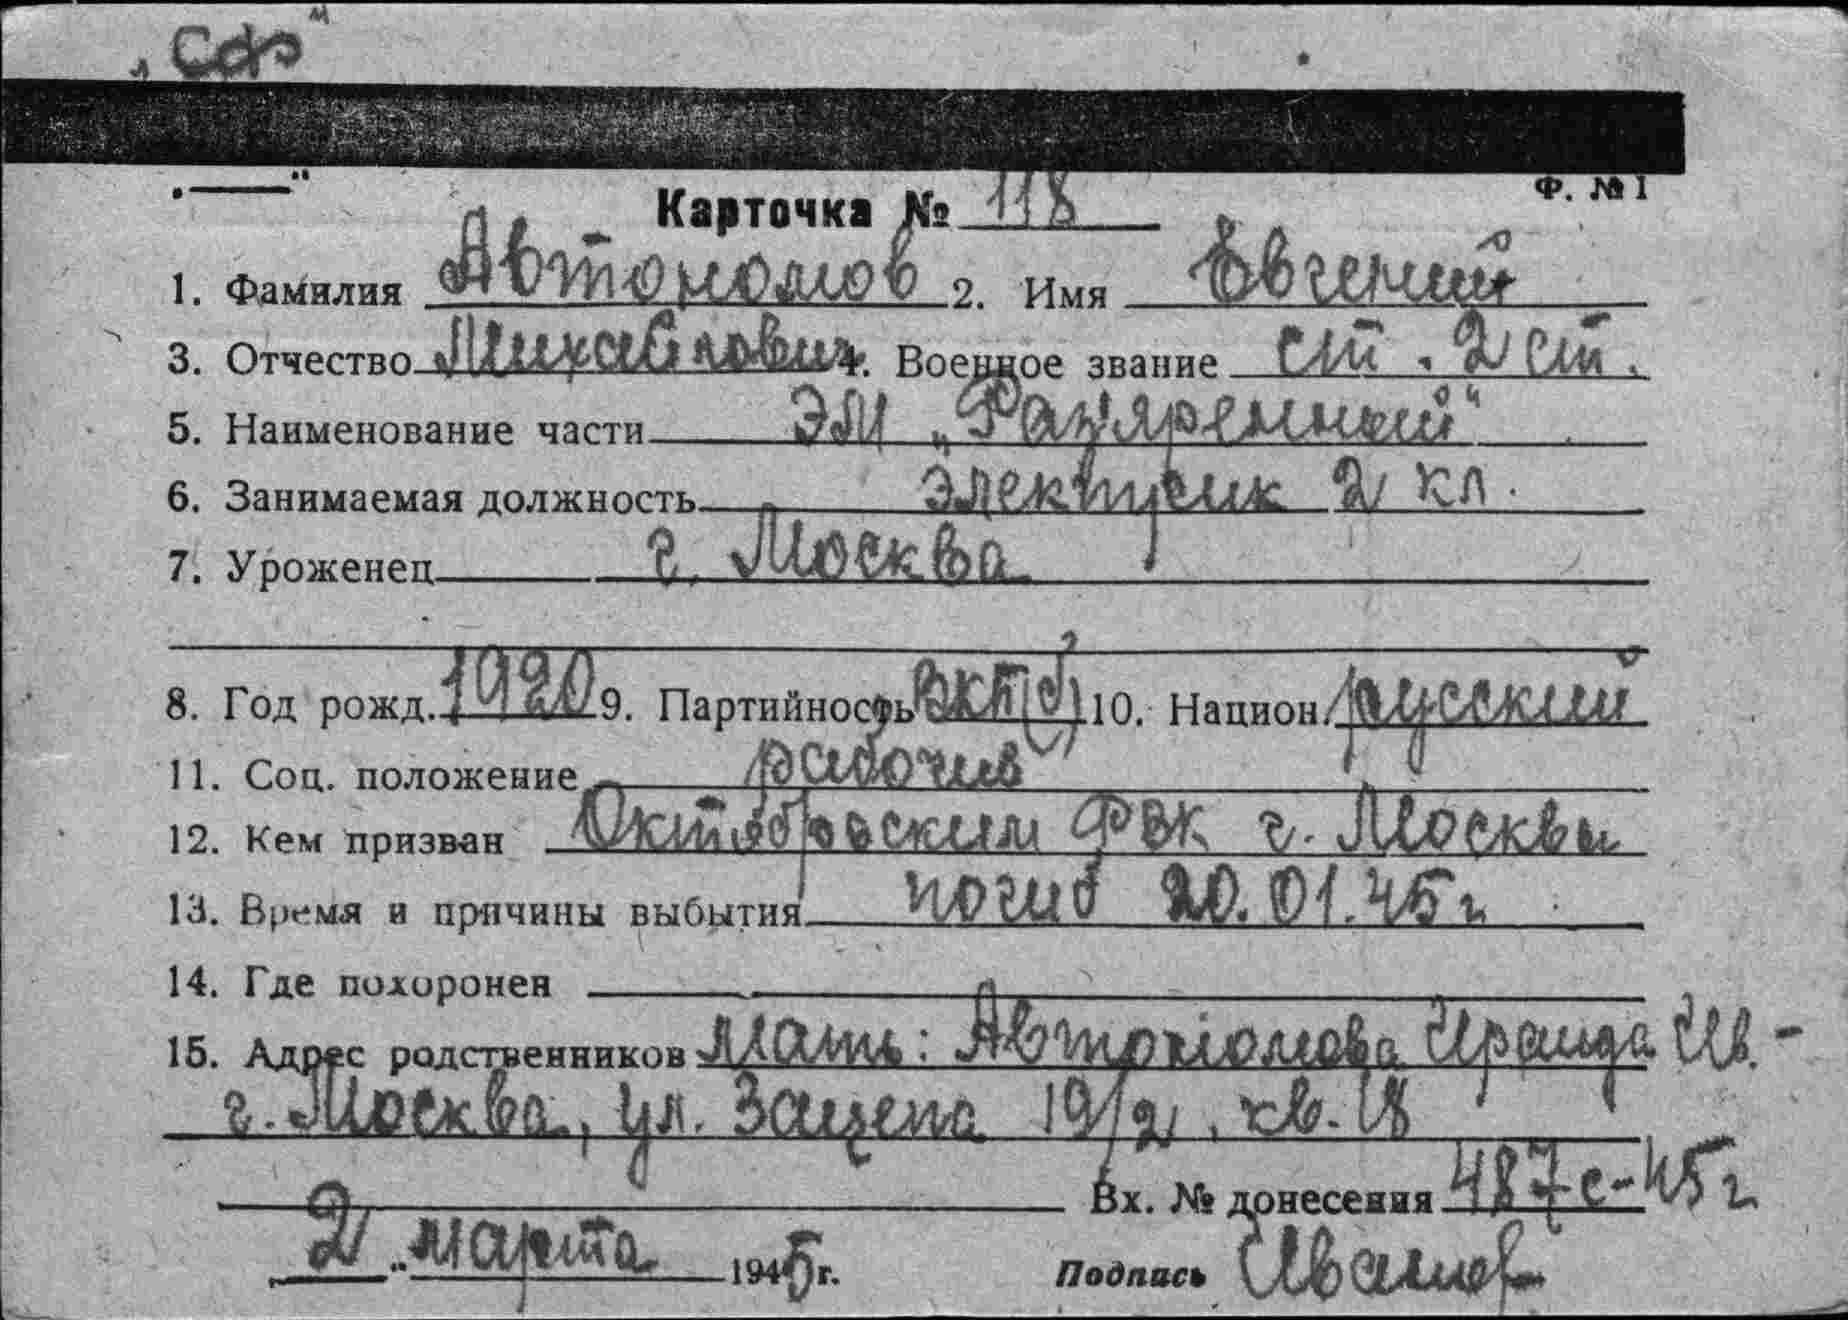 „СФ"
„——" Ф. №1
Карточка № 118
1. Фамилия Автономов 2. Имя Евгений
3. Отчество Михайлович 4. Военное звание ст. 2 ст.
5. Наименование части ЭМ „Разъяренный"
6. Занимаемая должность электрик 2 кл.
7. Уроженец г. Москва
8. Год рожд. 1920 9. Партийность ВКП(б) 10. Национ. русский
11. Соц. положение рабочий
12. Кем призван Октябрьским РВК г. Москвы
13. Время и причины выбытия погиб 20.01.45 г
14. Где похоронен
15. Адрес родственников Мать: Автономова Ираида Ив. -
г. Москва, ул. Зацепа 19/2, кв. 18
Вх. № донесения 487с-45 г
2 „ марта 1945 г. Подпись